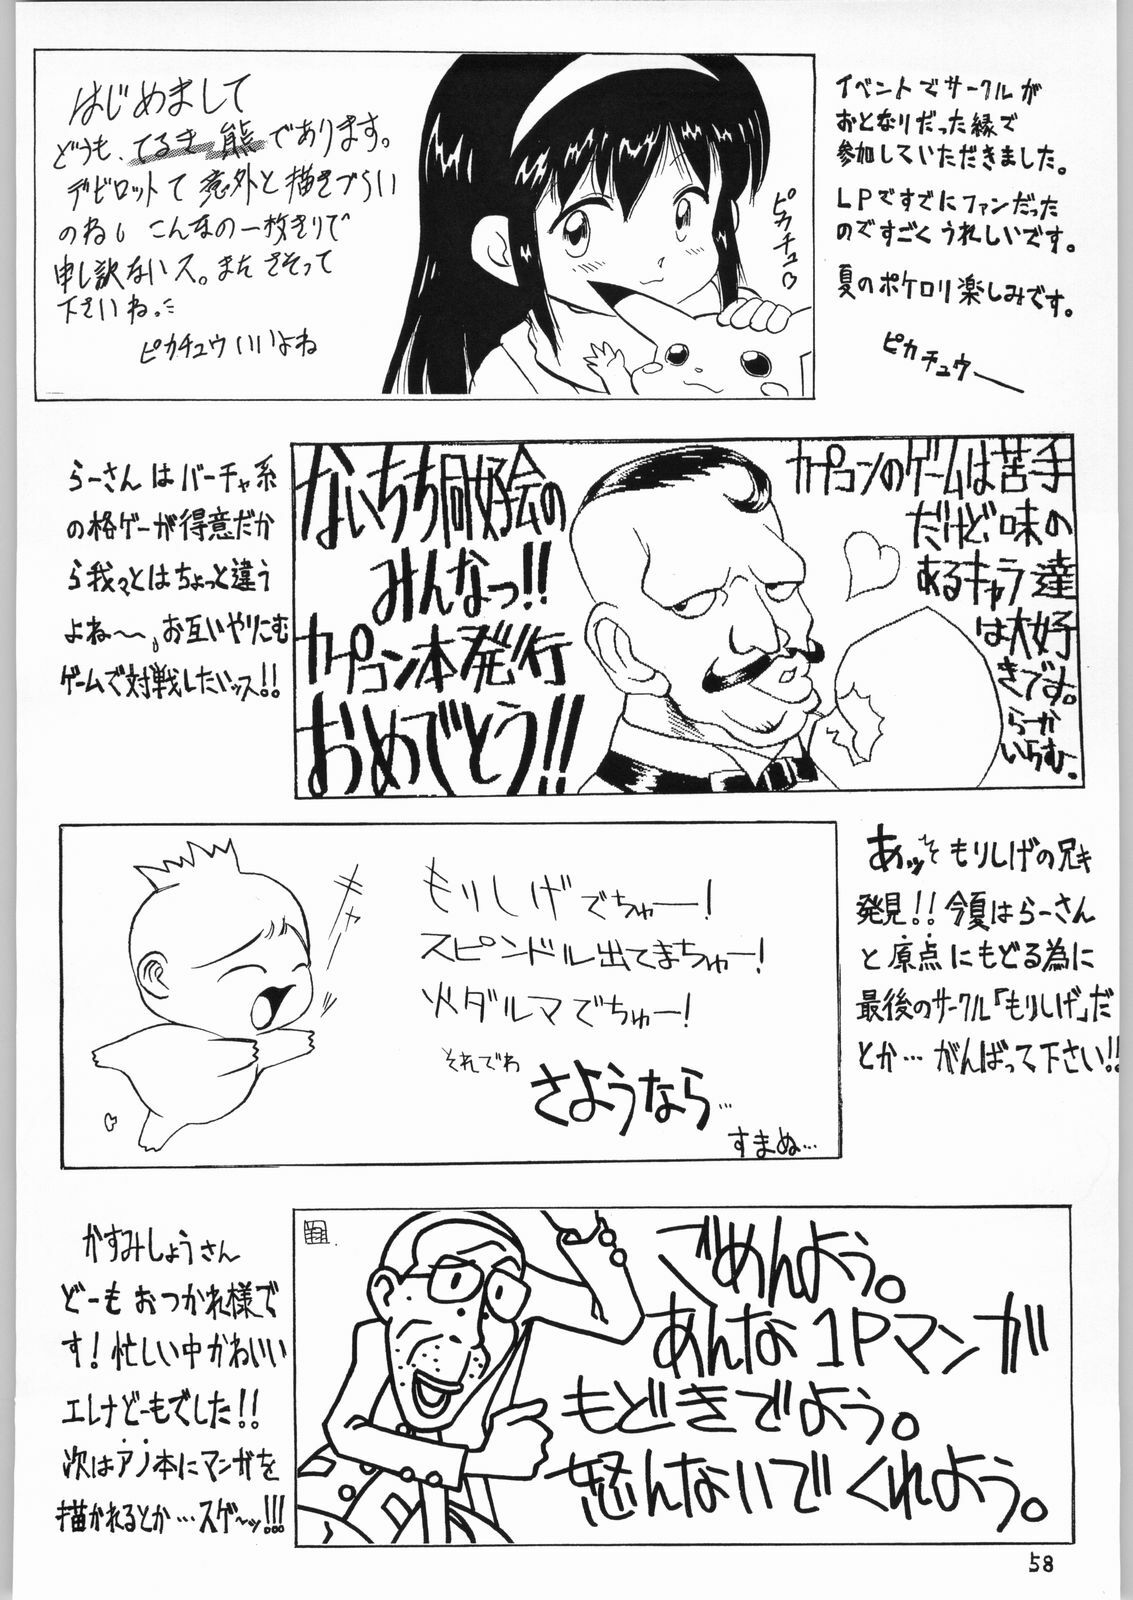 はじめまして
どうも、てるき熊であります。
デビロットて意外と描きづらい
のね。こんなの一枚きりで
申し訳ないス。またさそって
下さいね。
ピカチュウいいよね
ピカチュウ
イベントでサークルが
おとなりだった縁で
参加していただきました。
LPですでにファンだった
のですごくうれしいです。
夏のポケロリ楽しみです。
ピカチュウー
らーさんはバーチャ系
の格ゲーが得意だか
ら我々とはちょっと違う
よね〜〜。お互いやりこむ
ゲームで対戦したいッス!!
ないちち同好会の
みんなっ!!
カプコン本発行
おめでとう!!
カプコンのゲームは苦手
だけど、味の
あるキャラ達
は大好
きです。
らーか
いらむ。
キャー
もりしげでちゅー!
スピンドル出てまちゅー!
火ダルマでちゅー!
それでわ
さようなら…
すまぬ…
あッっそもりしげの兄キ
発見!!今夏はらーさん
と原点にもどる為に
最後のサークル「もりしげ」だ
とか…がんばって下さい!!
かすみしょうさん
どーもおつかれ様で
す!忙しい中かわいい
エレナどーもでした!!
次はアノ本にマンガを
描かれるとか…スゲ〜ッ!!!
ごめんよう。
あんな1Pマンが
もどきでよう。
怒んないでくれよう。
58